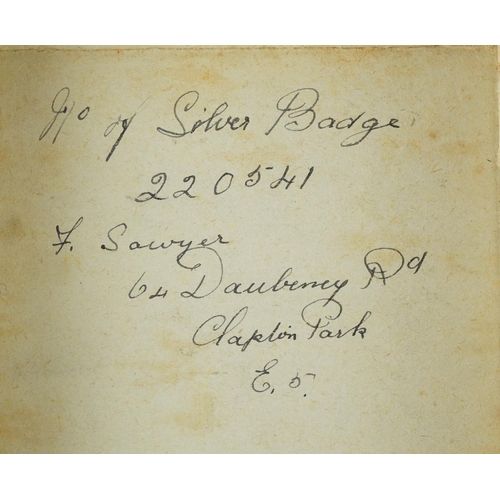 No of Silver Badge
220541
F. Sawyer
64 Daubeney Rd
Clapton Park
E. 5.